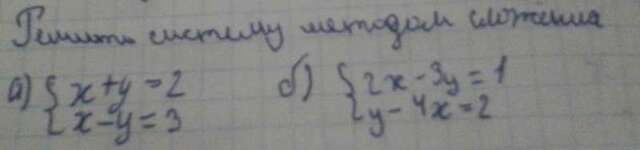 Решить систему методом сложения
а) { x+y=2 б) { 2x-3y=1
x-y=3 y-4x=2